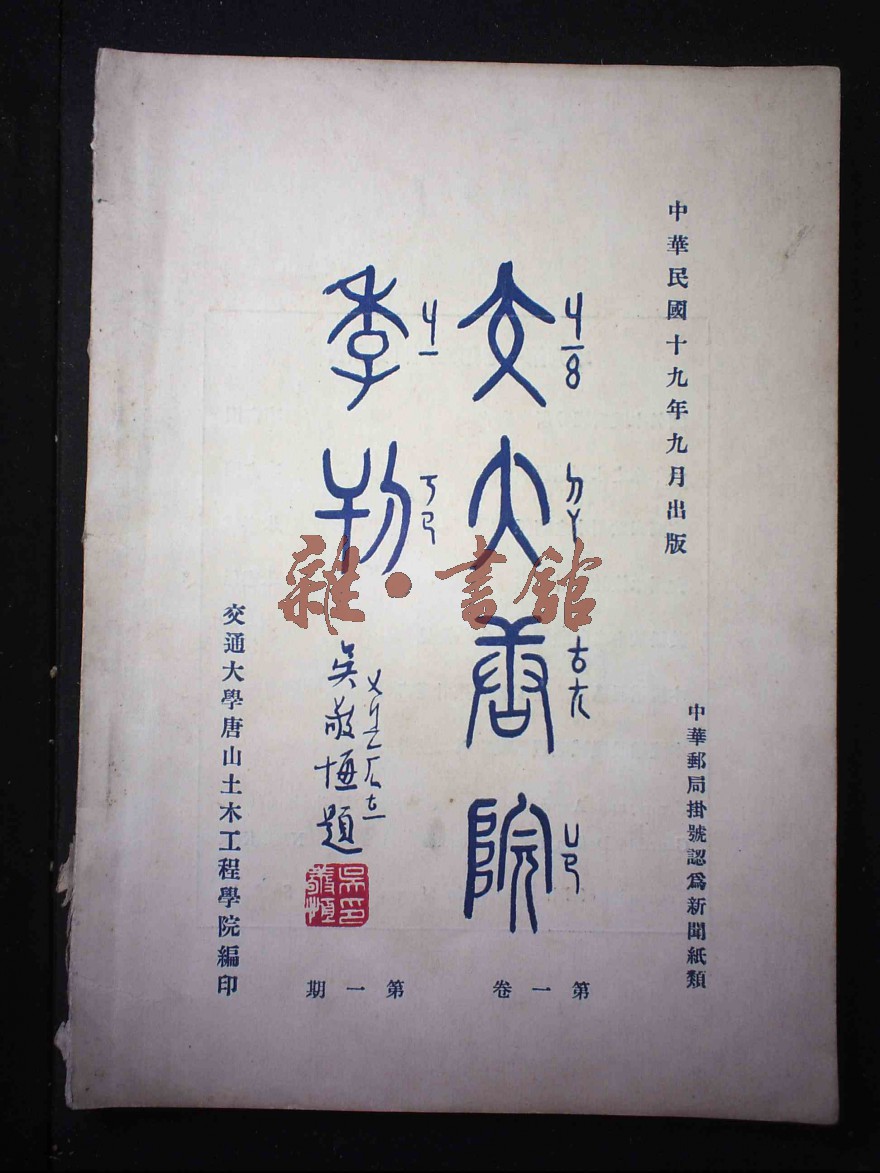 中華民國十九年九月出版
中華郵局掛號認爲新聞紙類
交大唐院
ㄐㄧㄠ ㄉㄚ ㄊㄤ ㄩㄢ
季刊
ㄐㄧ ㄎㄢ
吳敬恆題
吳敬恆印
雜·書館
第一卷
第一期
交通大學唐山土木工程學院編印